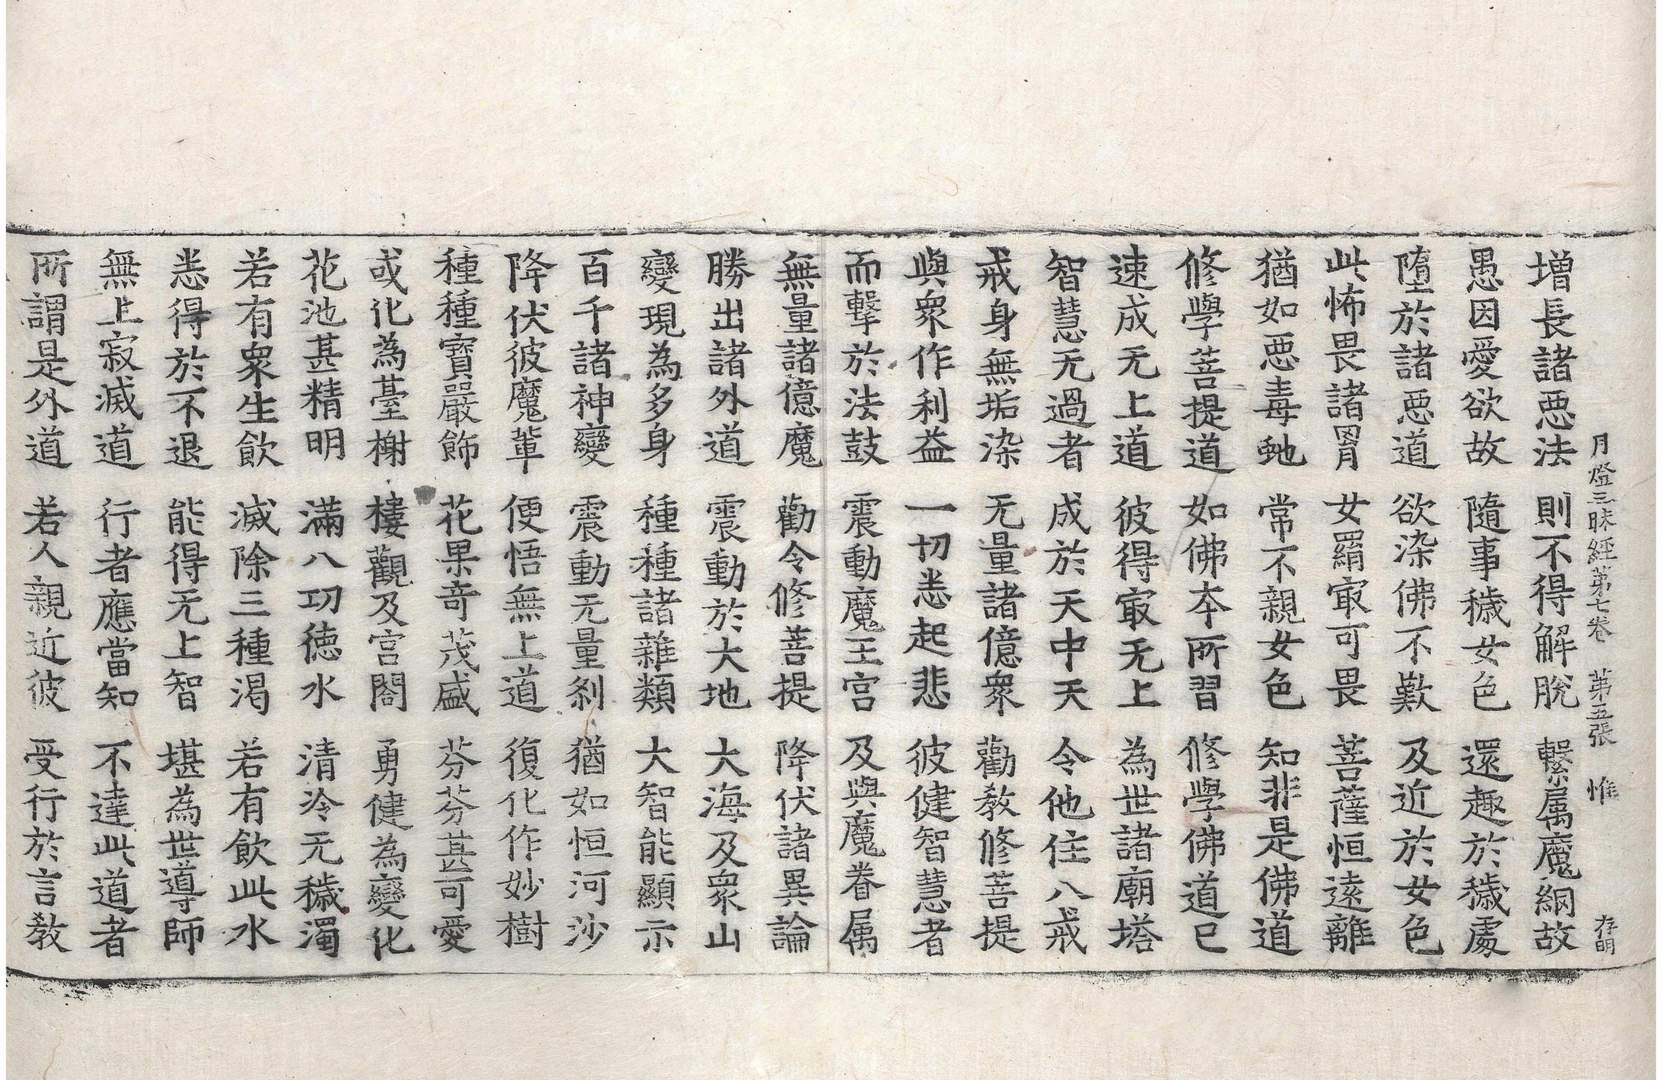 月燈三昧經第七卷　第五張　惟　存明
增長諸惡法　則不得解脫　繫属魔網故
愚因愛欲故　隨事穢女色　還趣於穢處
墮於諸惡道　欲染佛不歎　及近於女色
此怖畏諸罥　女羂冣可畏　菩薩恒遠離
猶如惡毒虵　常不親女色　知非是佛道
修學菩提道　如佛夲所習　修學佛道已
速成无上道　彼得冣无上　為世諸廟塔
智慧无過者　成於天中天　令他住八戒
戒身無垢染　无量諸億衆　勸教修菩提
與衆作利益　一切悉起悲　彼健智慧者
而擊於法鼓　震動魔王宮　及與魔眷属
無量諸億魔　勸令修菩提　降伏諸異論
勝出諸外道　震動於大地　大海及衆山
變現為多身　種種諸雜類　大智能顯示
百千諸神變　震動无量刹　猶如恒河沙
降伏彼魔軰　便悟無上道　復化作妙樹
種種寶嚴飾　花果竒茂盛　芬芬甚可愛
或化為臺榭　樓觀及宮閣　勇健為變化
花池甚精明　滿八功德水　清泠无穢濁
若有衆生飲　滅除三種渴　若有飲此水
悉得於不退　能得无上智　堪為世導師
無上寂滅道　行者應當知　不達此道者
所謂是外道　若人親近彼　受行於言教